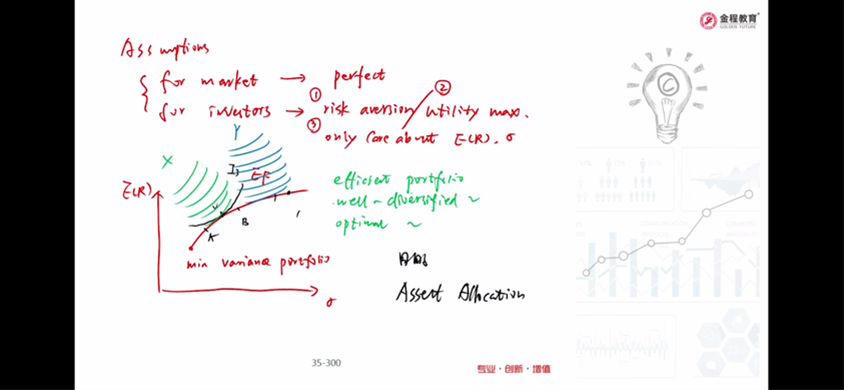 金程教育
GOLDEN FUTURE
Assumptions
for market → perfect
for investors → ① risk aversion ② utility max.
③ only care about E(R). σ
X
Y
I₃
EF
E(R)
A
B
efficient portfolio
well-diversified ~
optimal ~
min variance portfolio
σ
Assert Allocation
35-300
专业·创新·增值